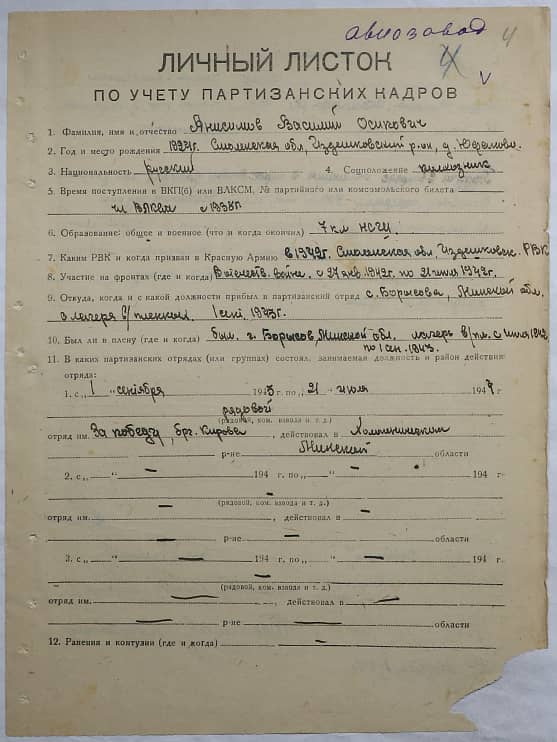 автозавод 4
4
ЛИЧНЫЙ ЛИСТОК
ПО УЧЕТУ ПАРТИЗАНСКИХ КАДРОВ
1. Фамилия, имя и отчество Анисимов Василий Осипович
2. Год и место рождения Смоленская обл, Издешковский р-он, д.
3. Национальность русский 4. Соцположение колхозник
5. Время поступления в ВКП(б) или ВЛКСМ, № партийного или комсомольского билета
чл ВЛКСМ с 1938г
6. Образование: общее и военное (что и когда окончил) 7 кл НСШ.
7. Каким РВК и когда призван в Красную Армию в 1942г. Смоленская обл, Издешковск. РВК
8. Участие на фронтах (где и когда) В отечеств. войне. с 27 янв. 1942г. по 21 июля 1942г.
9. Откуда, когда и с какой должности прибыл в партизанский отряд с. Борисова, Минской обл.
из лагеря в/пленных. 1 сен. 1943г.
10. Был ли в плену (где и когда) был. г. Борисов, Минской обл. лагерь в/пл. с июля 1942
по 1 сен. 1943.
11. В каких партизанских отрядах (или группах) состоял, занимаемая должность и район действия
отряда:
1. с „1 “ сентября 1943 г. по „ 21 “ июля 1944 г
рядовой
(рядовой, ком. взвода и т. д.)
отряд им. За победу, бриг. Кирова, действовал в
р-не Минской области
2. с „ — “ — 194 г. по „ — “ — 194 г-
—
(рядовой, ком. взвода и т. д.)
отряд им. —, действовал в —
— р-не — области
3. с „ “ — 194 г. по „ “ — 194 г
—
(рядовой, ком. взвода и т. д.)
отряд им. —, действовал в —
— р-не — области
12. Ранения и контузии (где и когда) —